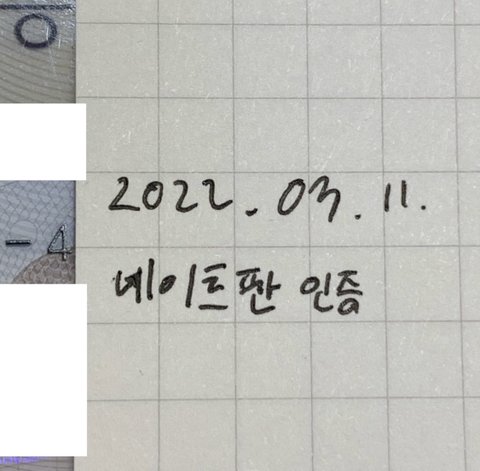 0
2022. 03. 11.
- 4
네이트판 인증